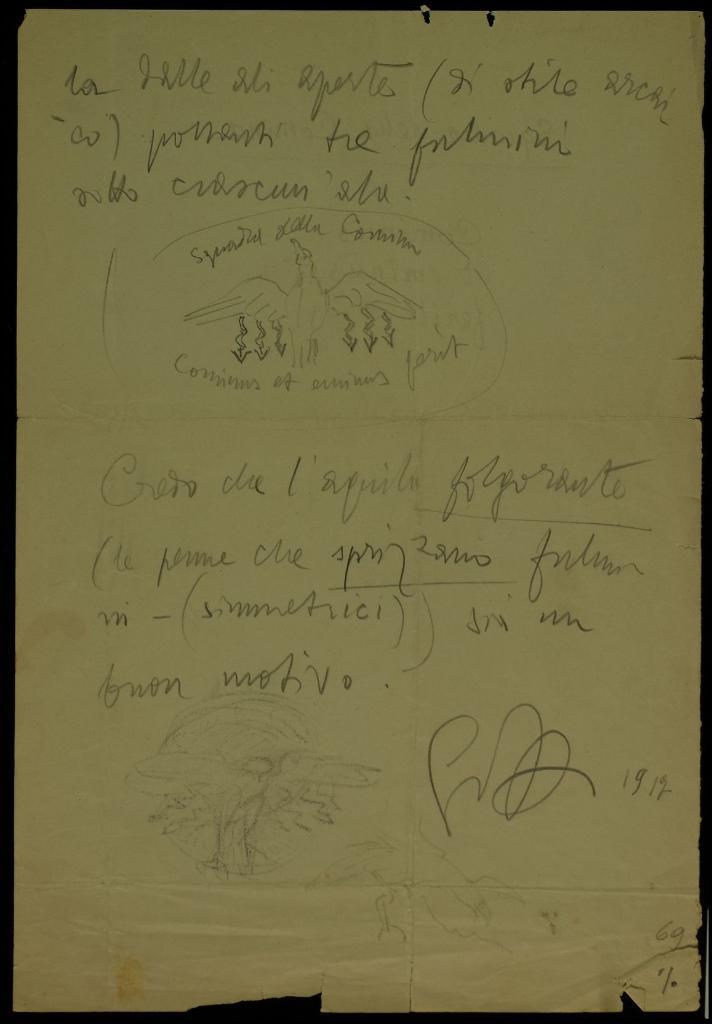 la dalle ali aperte (di stile arcai
co) portanti tre fulmini
sotto ciascun'ala.
Squadra della Comina
Cominus et eminus ferit
Credo che l'aquila folgorante
(le penne che sprizzano fulmi
ni - (simmetrici)) sia un
buon motivo.
1917
69